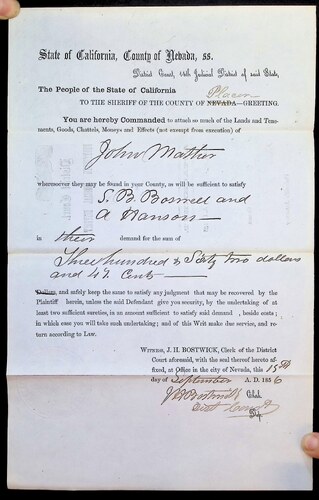 State of California, County of Nevada, ss.
District Court, 14th Judicial District of said State,
The People of the State of California
Placer
TO THE SHERIFF OF THE COUNTY OF NEVADA—GREETING.
You are hereby Commanded to attach so much of the Lands and Tene-
ments, Goods, Chattels, Moneys and Effects (not exempt from execution) of
John Mather
wheresoever they may be found in your County, as will be sufficient to satisfy
S. B. Boswell and
A Hanson
in their demand for the sum of
Three hundred & Sixty two dollars
and 47 Cents
Dollars, and safely keep the same to satisfy any judgment that may be recovered by the
Plaintiff herein, unless the said Defendant give you security, by the undertaking of at
least two sufficient sureties, in an amount sufficient to satisfy said demand, besides costs;
in which case you will take such undertaking; and of this Writ make due service, and re-
turn according to Law.
WITNESS, J. H. BOSTWICK, Clerk of the District
Court aforesaid, with the seal thereof hereto af-
fixed, at Office in the city of Nevada, this 15th
day of September A. D. 1856
J H Bostwick Clerk.